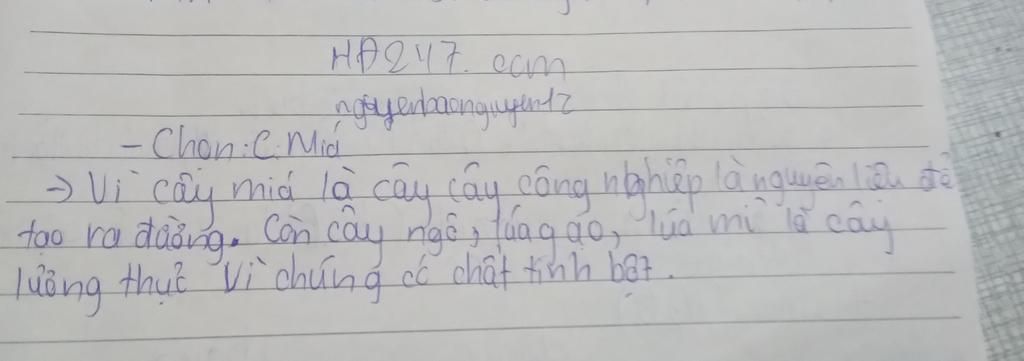 HĐ247.com
nguyenbaonguyen12
- Chọn: C. Miá
→ Vì cây miá là cây cây công nghiệp là nguyên liệu để
tạo ra đường. Còn cây ngô, lúa gạo, lúa mì là cây
lương thực vì chúng có chất tinh bột.